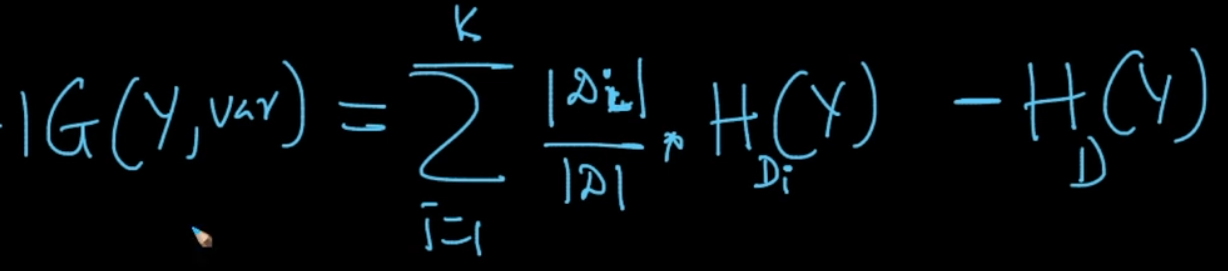 IG(Y, var) = K∑i=1 |Di|/|D| * H_Di(Y) - H_D(Y)